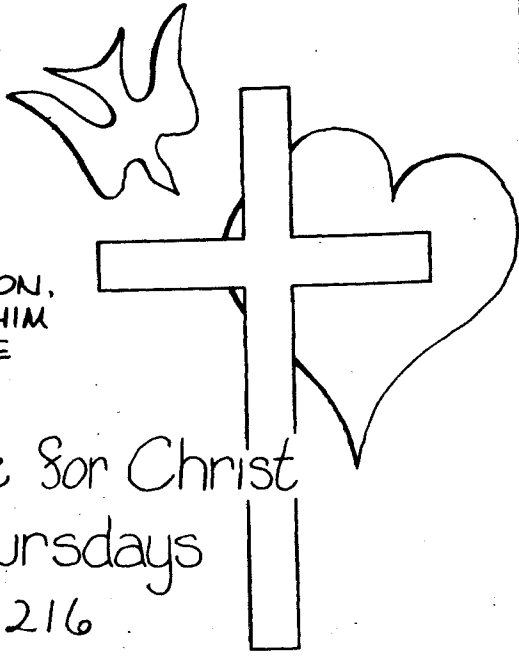 ON,
HIM
E
e for Christ
ursdays
216